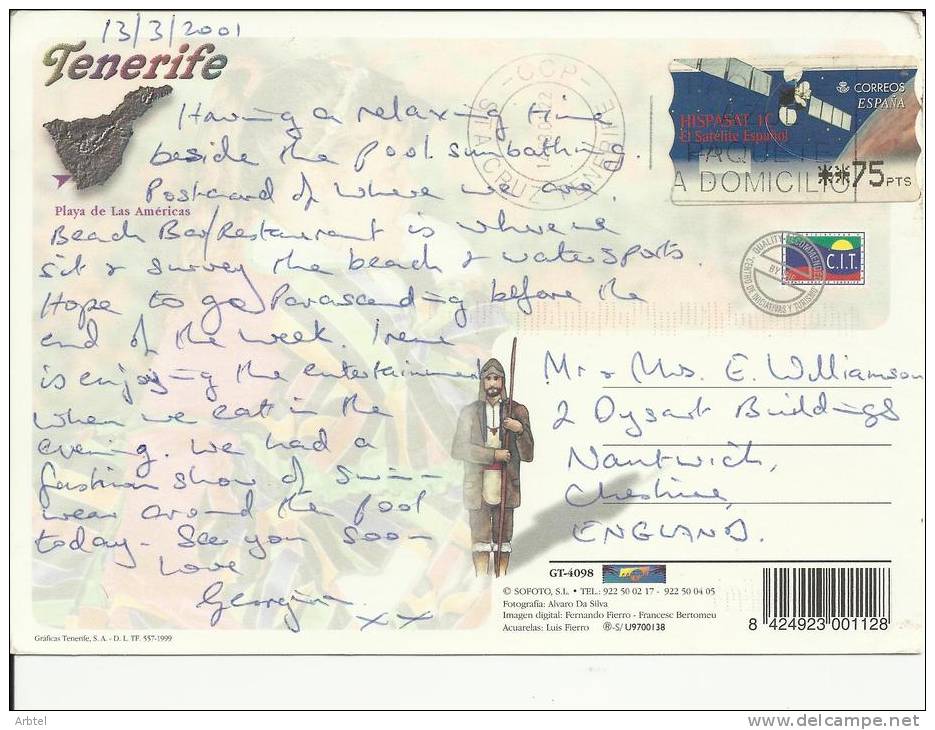 13/3/2001
Tenerife
Playa de Las Américas
Having a relaxing time
beside the pool sunbathing.
Postcard of where we are.
Beach Bar/Restaurant is where
sit & survey the beach & watersports.
Hope to go Parascending before the
end of the week. Irene
is enjoying the entertainment
when we eat in the
evening. We had a
fashion show of swim-
wear around the pool
today - See you soon
Love
Georgina
x x
CCP
STA CRUZ TENERIFE
CORREOS
ESPAÑA
HISPASAT 1C
El Satélite Español
PAQUETE
A DOMICILIO
**75 PTS
QUALITY RECOMMENDED
BY THE
CENTRO DE INICIATIVAS Y TURISMO
C.I.T.
Mr & Mrs. E. Williamson
2 Dysart Buildings
Nantwich,
Cheshire,
ENGLAND.
GT-4098
© SOFOTO, S.L. • TEL.: 922 50 02 17 - 922 50 04 05
Fotografía: Alvaro Da Silva
Imagen digital: Fernando Fierro - Francesc Bertomeu
Acuarelas: Luis Fierro ®-S/ U9700138
8 424923 001128
Gráficas Tenerife, S. A. - D. L. TF. 557-1999
Arbtel
www.delcampe.net